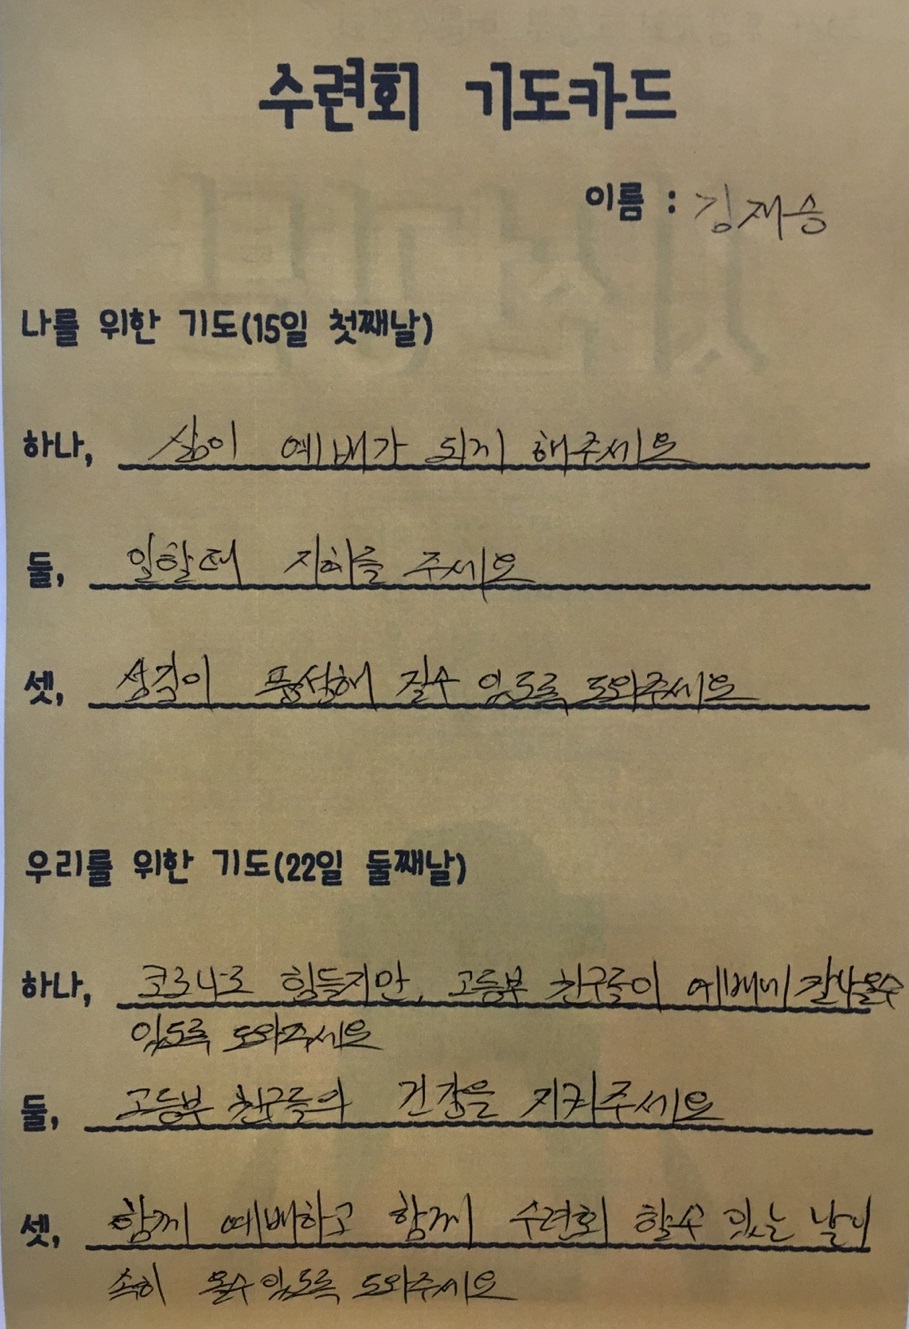 수련회 기도카드
이름 : 김재승
나를 위한 기도(15일 첫째날)
하나, 삶이 예배가 되게 해주세요
둘, 일할때 지혜를 주세요
셋, 성결이 풍성해 질수 있도록 도와주세요
우리를 위한 기도(22일 둘째날)
하나, 코로나로 힘들지만, 고등부 친구들이 예배에 잘 나올수
있도록 도와주세요
둘, 고등부 친구들의 건강을 지켜주세요
셋, 함께 예배하고 함께 수련회 할수 있는 날이
속히 올수있도록 도와주세요